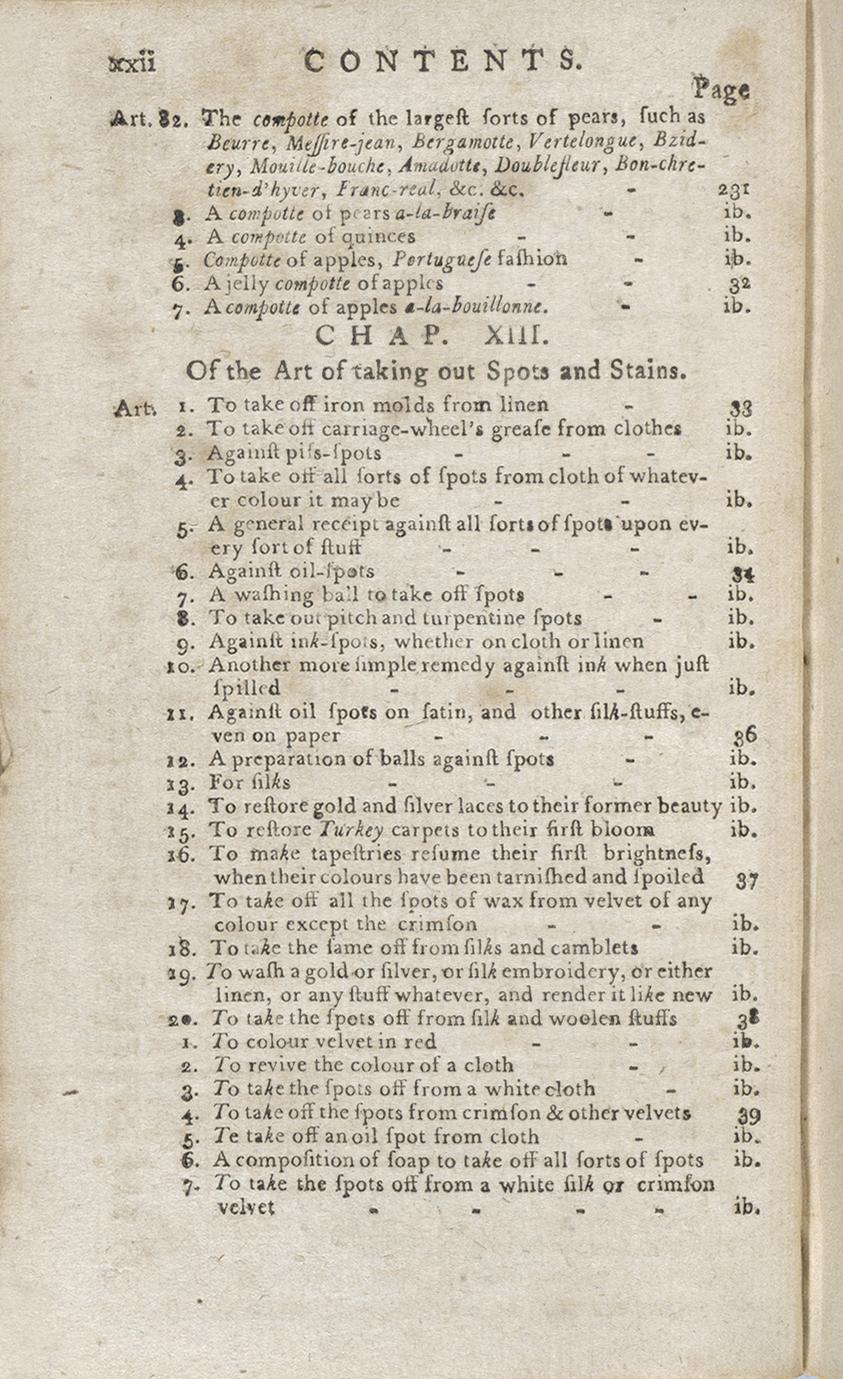 xxii CONTENTS.
Page
Art. 82. The compotte of the largeſt ſorts of pears, ſuch as
Beurre, Meſſire-jean, Bergamotte, Vertelongue, Bzid-
ery, Mouille-bouche, Amadotte, Doublefleur, Bon-chre-
tien-d'hyver, Franc-real, &c. &c. - 231
3. A compotte of pears a-la-braiſe - ib.
4. A compotte of quinces - - ib.
5. Compotte of apples, Portugueſe faſhion - ib.
6. A jelly compotte of apples - - 32
7. A compotte of apples a-la-bouillonne. - ib.
CHAP. XIII.
Of the Art of taking out Spots and Stains.
Art. 1. To take off iron molds from linen - 33
2. To take off carriage-wheel's greaſe from clothes ib.
3. Againſt piſs-ſpots - - - ib.
4. To take off all ſorts of ſpots from cloth of whatev-
er colour it may be - - ib.
5. A general receipt againſt all ſorts of ſpots upon ev-
ery ſort of ſtuff - - - ib.
6. Againſt oil-ſpots - - - 34
7. A waſhing ball to take off ſpots - - ib.
8. To take out pitch and turpentine ſpots - ib.
9. Againſt ink-ſpots, whether on cloth or linen ib.
10. Another more ſimple remedy againſt ink when juſt
ſpilled - - - ib.
11. Againſt oil ſpots on ſatin, and other ſilk-ſtuffs, e-
ven on paper - - - 36
12. A preparation of balls againſt ſpots - ib.
13. For ſilks - - - ib.
14. To reſtore gold and ſilver laces to their former beauty ib.
15. To reſtore Turkey carpets to their firſt bloom ib.
16. To make tapeſtries reſume their firſt brightneſs,
when their colours have been tarniſhed and ſpoiled 37
17. To take off all the ſpots of wax from velvet of any
colour except the crimſon - - ib.
18. To take the ſame off from ſilks and camblets ib.
19. To waſh a gold or ſilver, or ſilk embroidery, or either
linen, or any ſtuff whatever, and render it like new ib.
20. To take the ſpots off from ſilk and woolen ſtuffs 38
1. To colour velvet in red - - ib.
2. To revive the colour of a cloth - ib.
3. To take the ſpots off from a white cloth - ib.
4. To take off the ſpots from crimſon & other velvets 39
5. Te take off an oil ſpot from cloth - ib.
6. A compoſition of ſoap to take off all ſorts of ſpots ib.
7. To take the ſpots off from a white ſilk or crimſon
velvet - - - - ib.